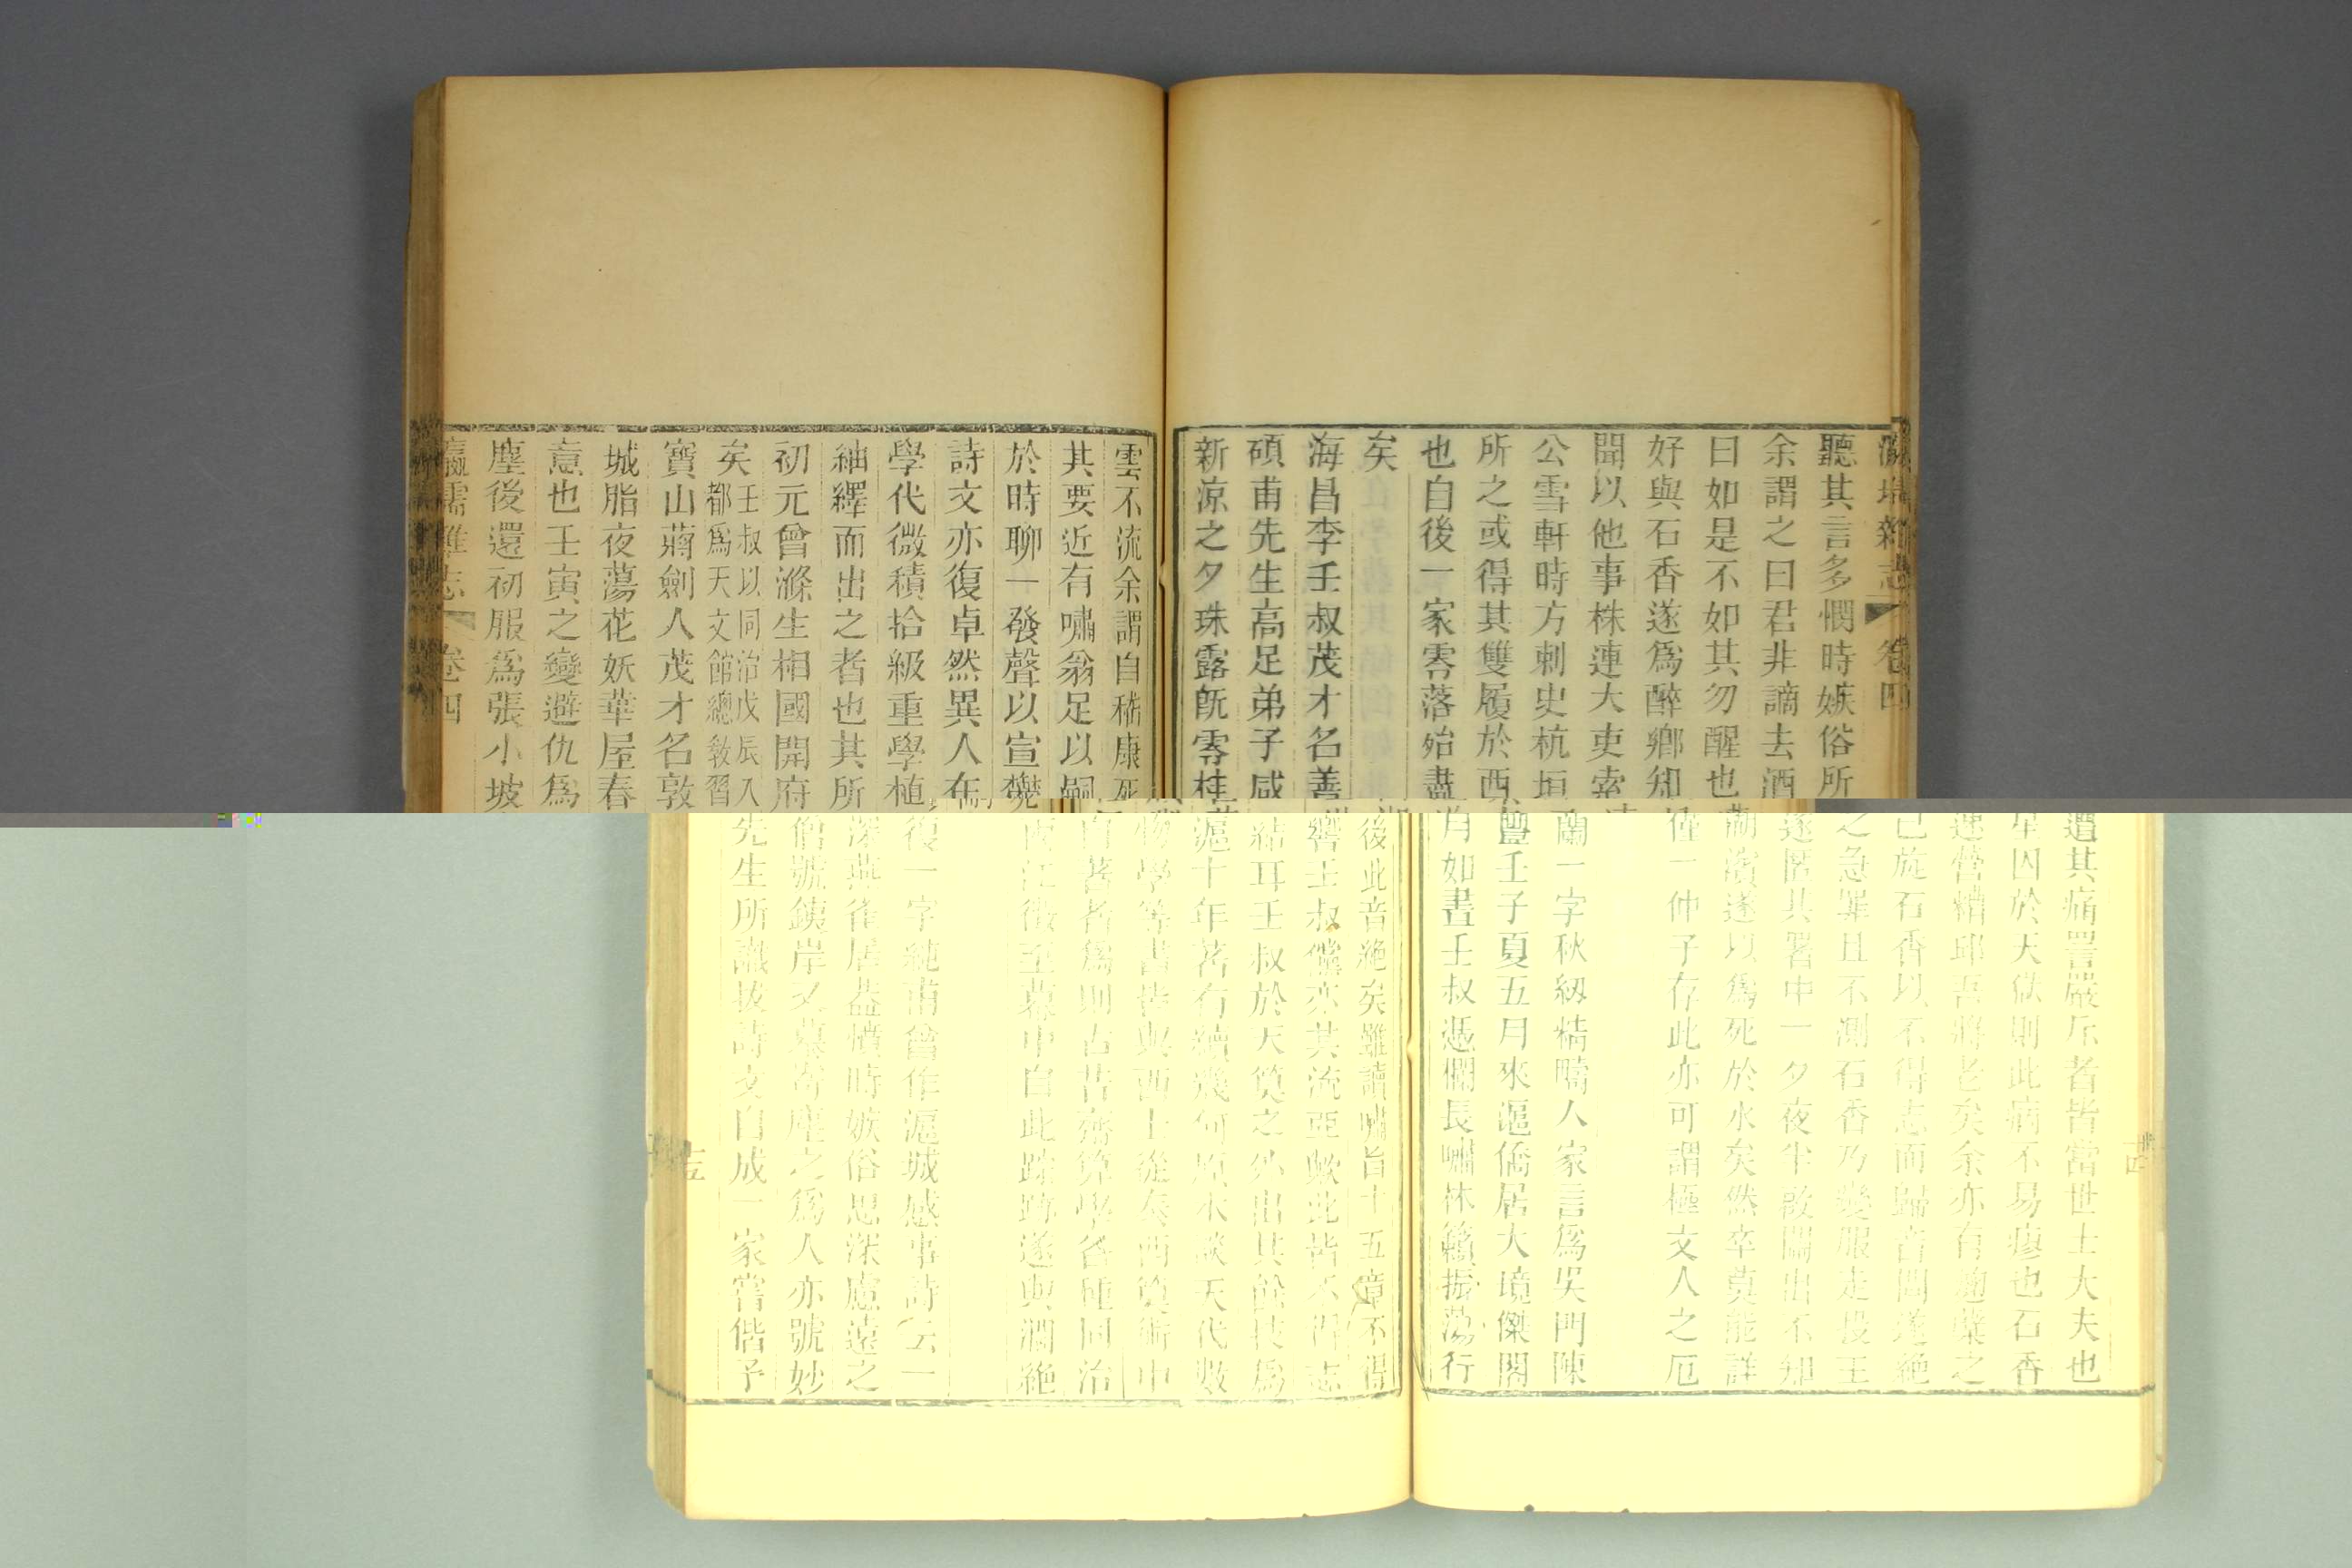 瀛壖雜志 卷四 十四
聽其言多憫時嫉俗所遭其痛詈嚴斥者皆當世士大夫也
余謂之曰君非謫去酒星囚於天獄則此病不易瘳也石香
曰如是不如其勿醒也連營糟邱吾將老矣余亦有麴糵之
好與石香遂爲醉鄉知己旋石香以不得志而歸音問遂絕
聞以他事株連大吏索之急罪且不測石香乃變服走投王
公雪軒時方刺史杭垣遂匿其署中一夕夜半啟關出不知
所之或得其雙履於西湖濱遂以爲死於水矣然卒莫能詳
也自後一家零落殆盡僅一仲子存此亦可謂極文人之厄
矣
海昌李壬叔茂才名善蘭一字秋紉精疇人家言爲吳門陳
碩甫先生高足弟子咸豐壬子夏五月來滬僑居大境傑閣
新涼之夕珠露旣零桂月如晝壬叔憑欄長嘯林籟振蕩行
雲不流余謂自嵇康死後此音絕矣雖讀嘯旨十五章不得
其要近有嘯翁足以嗣響壬叔儻亦其流亞歟此皆不得志
於時聊一發聲以宣鬱結耳壬叔於天算之外出其餘技爲
詩文亦復卓然異人在滬十年著有續幾何原本談天代數
學代微積拾級重學植物學等書皆與西士西算術中
紬繹而出之者也其所自著者爲則古昔齋算學各種同治
初元曾滌生相國開府兩江徵至幕中自此蹤跡遂與濶絕
矣壬叔以同治戊辰入都爲天文館總敎習
寶山蔣劍人茂才名敦復一字純甫曾作滬城感事詩云一
城脂夜蕩花妖華屋春深燕雀居蓋憤時嫉俗思深慮遠之
意也壬寅之變避仇爲僧號鐵岸又慕寄塵之爲人亦號妙
塵後還初服爲張小坡先生所識拔詩文自成一家嘗偕予
瀛壖雜志 卷四 十五